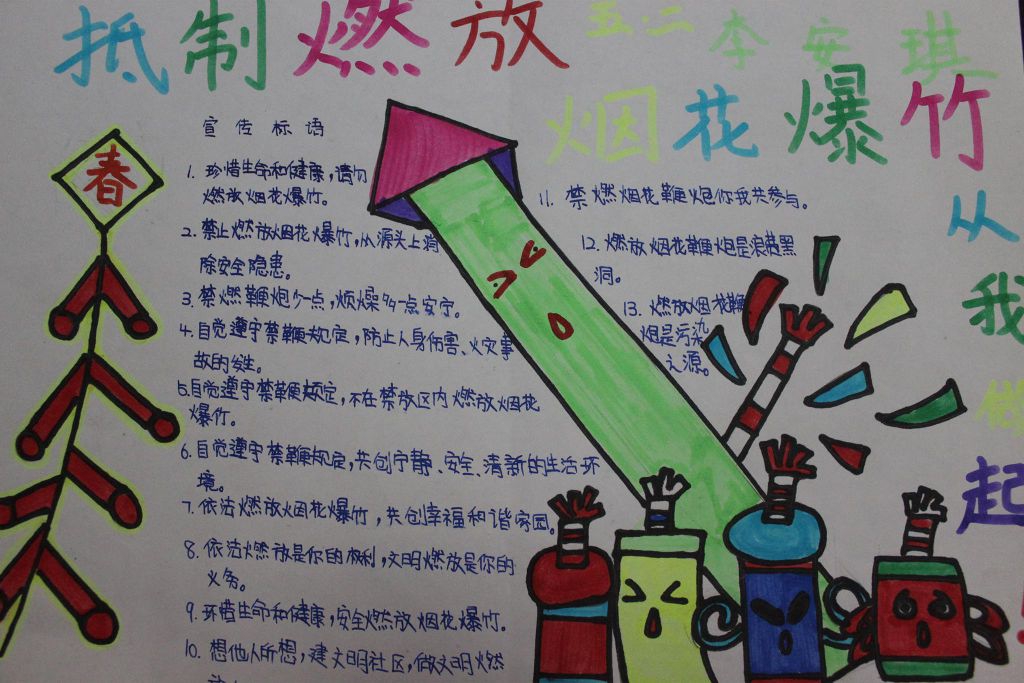 抵制燃放
五.二 李安琪
烟花爆竹
从
我
做
起
春
宣传标语
1. 珍惜生命和健康，请勿
燃放烟花爆竹。
2. 禁止燃放烟花爆竹，从源头上消
除安全隐患。
3. 禁燃鞭炮少一点，烦燥少一点安宁。
4. 自觉遵守禁鞭规定，防止人身伤害、火灾事
故的发生。
5. 自觉遵守禁鞭规定，不在禁放区内燃放烟花
爆竹。
6. 自觉遵守禁鞭规定，共创宁静、安全、清新的生活环
境。
7. 依法燃放烟花爆竹，共创幸福和谐家园。
8. 依法燃放是你的权利，文明燃放是你的
义务。
9. 珍惜生命和健康，安全燃放烟花爆竹。
10. 想他人所想，建文明社区，做文明燃
11. 禁燃烟花鞭炮你我共参与。
12. 燃放烟花鞭炮是浪费黑
洞。
13. 燃放烟花鞭
炮是污染
之源。